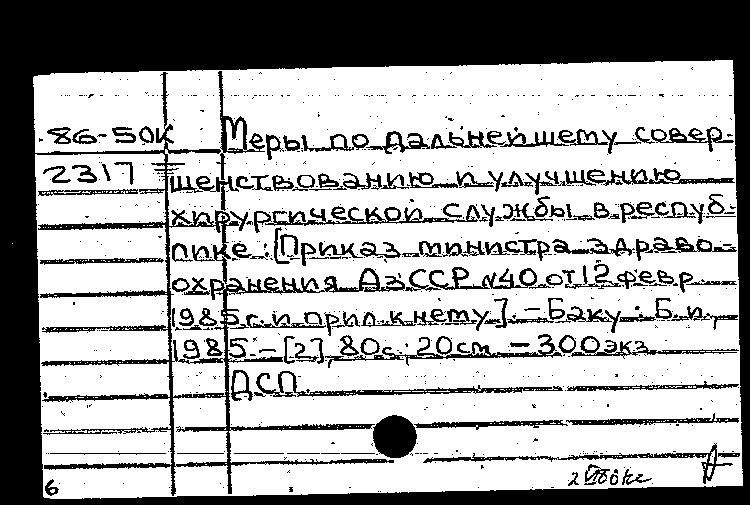 86-50К Меры по дальнейшему совер-
2317 шенствованию и улучшению
хирургической службы в респуб-
лике : [Приказ министра здраво-
охранения АзССР №40 от 12 февр.
1985 г. и прил. к нему]. - Баку : Б. и.,
1985. - [2], 80 с.; 20 см. - 300 экз.
ДСП
6